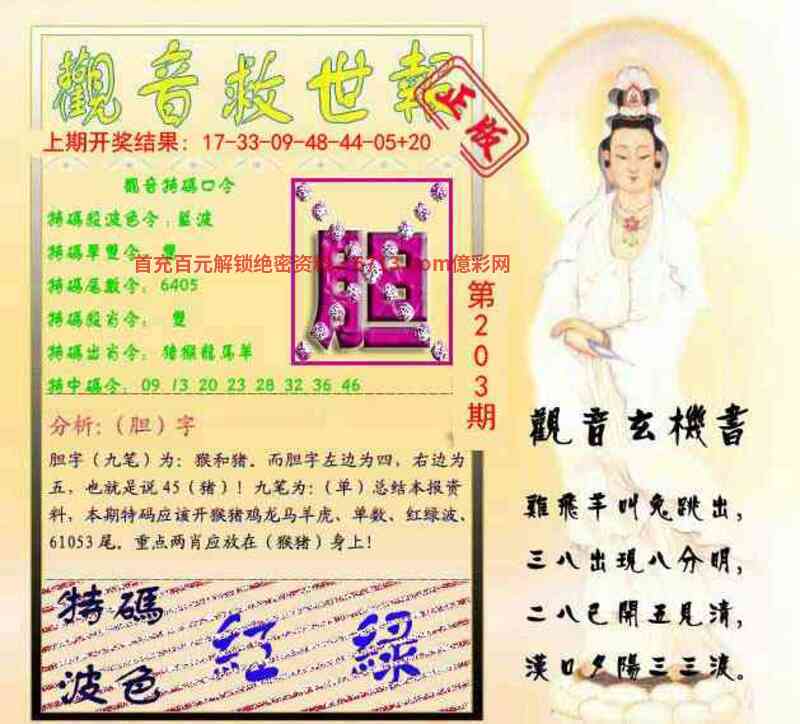 觀音救世報
正版
上期开奖结果：17-33-09-48-44-05+20
觀音特碼口令
特碼殺波色令：藍波
特碼單雙令：雙
首充百元解锁绝密资料
億彩网
特碼尾數令：6405
特碼殺肖令：雙
特碼出肖令：猪猴龍馬羊
特中碼令：09 13 20 23 28 32 36 46
胆
第203期
分析：（胆）字
胆字（九笔）为：猴和猪。而胆字左边为四，右边为
五，也就是说45（猪）！九笔为：（单）总结本报资
料，本期特码应该开猴猪鸡龙马羊虎、单数、红绿波、
61053尾。重点两肖应放在（猴猪）身上！
特碼
波色
紅 綠
觀音玄機書
雞飛羊叫兔跳出，
三八出現八分明，
二八已開五見清，
漢口夕陽三三渡。